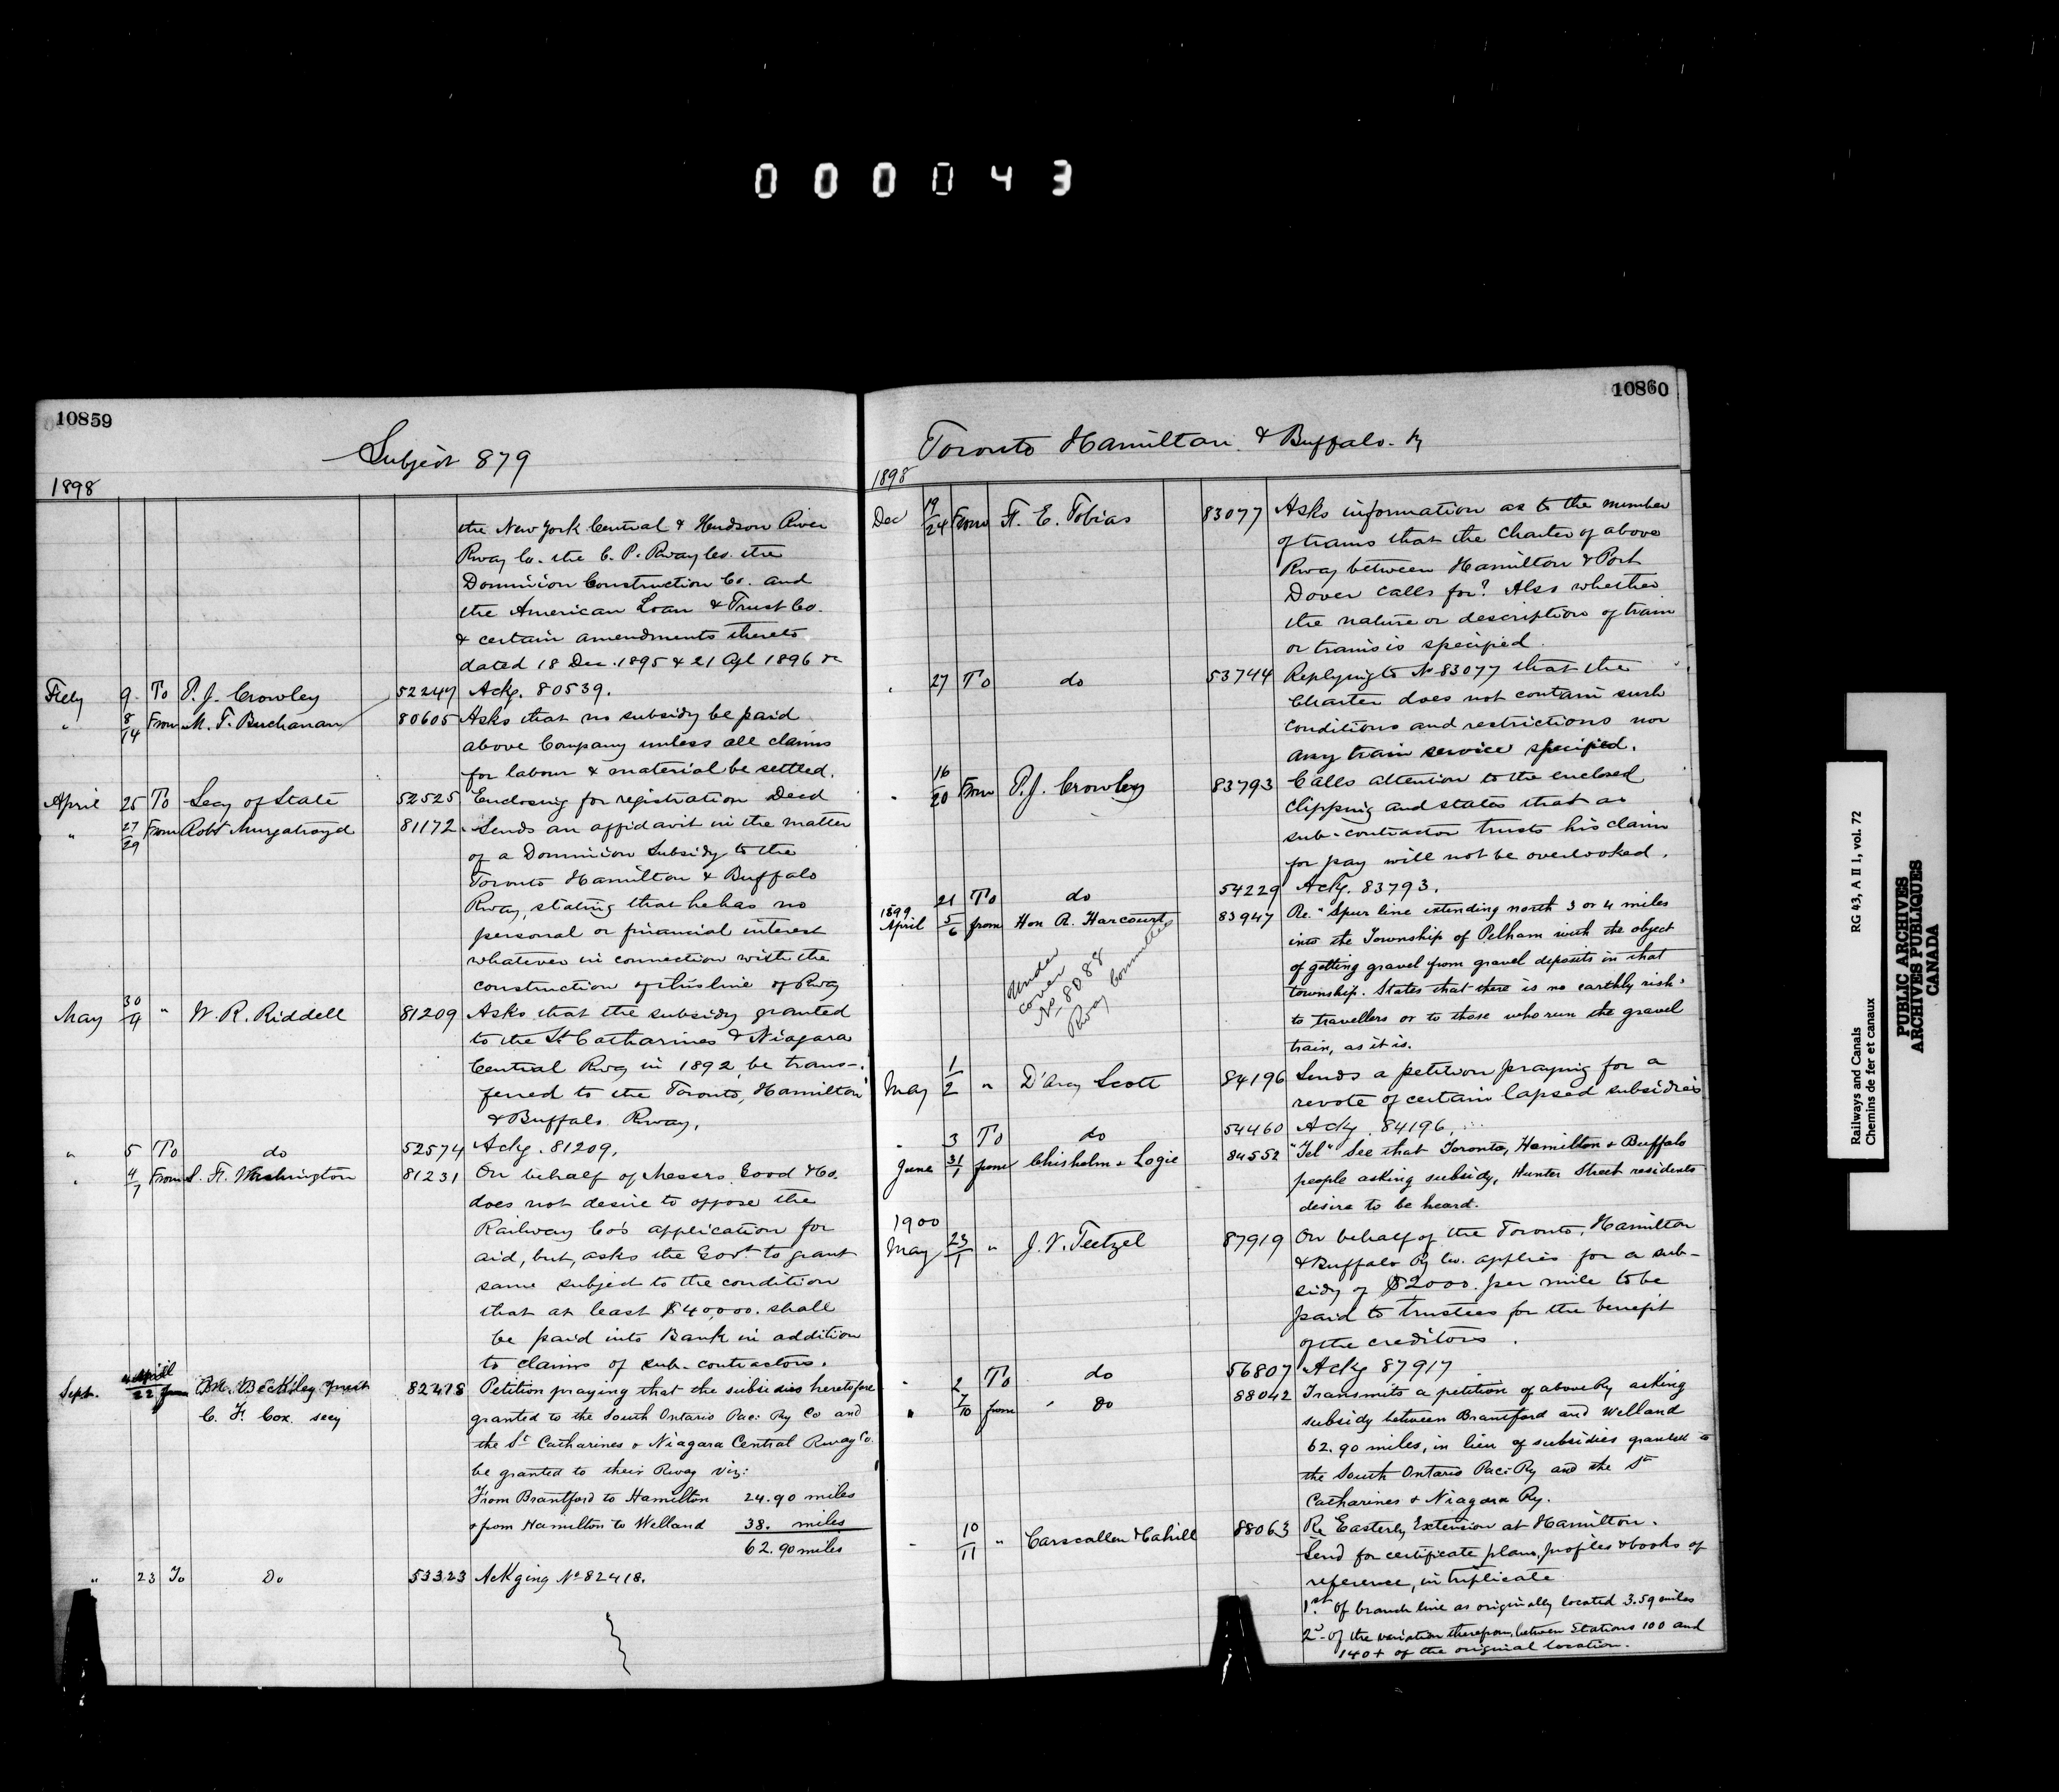 000043
10859
Subject 879
1898
the New York Central & Hudson River
Rway Co. the C. P. Rway Co. the
Dominion Construction Co. and
the American Loan & Trust Co.
& certain amendments thereto
dated 18 Dec. 1895 & 21 Apl 1896 &c
Feby 9 To P. J. Crowley 52247 Ackg. 80539.
" 8/14 From M. F. Buchanan 80605 Asks that no subsidy be paid
above Company unless all claims
for labour & material be settled.
April 25 To Secy of State 52525 Enclosing for registration Deed
" 27/29 From Robt Murgatroyd 81172 Sends an affidavit in the matter
of a Dominion Subsidy to the
Toronto Hamilton & Buffalo
Rway, stating that he has no
personal or financial interest
whatever in connection with the
construction of this line of Rway
May 30/4 " W. R. Riddell 81209 Asks that the subsidy granted
to the St Catharines & Niagara
Central Rway in 1892, be trans-
ferred to the Toronto, Hamilton
& Buffalo Rway.
" 5 To do 52574 Ackg. 81209.
" 4/7 From S. F. Washington 81231 On behalf of Messrs. Good & Co.
does not desire to oppose the
Railway Co's application for
aid, but, asks the Govt. to grant
same subject to the condition
that at least $40,000. shall
be paid into Bank in addition
to claims of sub-contractors.
Sept. 4 April/22 from Beckley Prest 82418 Petition praying that the subsidies heretofore
C. F. Cox secy granted to the South Ontario Paci: Ry Co and
the St Catharines & Niagara Central Rway Co.
be granted to their Rway viz:
From Brantford to Hamilton 24.90 miles
& from Hamilton to Welland 38. miles
62.90 miles
" 23 To Do 53323 Ackging No 82418.
10860
Toronto Hamilton & Buffalo Ry
1898
Dec 19/24 From F. E. Tobias 83077 Asks information as to the number
of trains that the Charter of above
Rway between Hamilton & Port
Dover calls for? Also whether
the nature or description of train
or trains is specified.
" 27 To do 53744 Replying to No 83077 that the
Charter does not contain such
conditions and restrictions nor
any train service specified.
" 16/20 From P. J. Crowley 83793 Calls attention to the enclosed
clipping and states that as
sub-contractor trusts his claim
for pay will not be overlooked.
21 To do 54229 Ackg. 83793.
1899
April 5/6 from Hon R. Harcourt 83947 Re. "Spur line extending north 3 or 4 miles
into the Township of Pelham with the object
of getting gravel from gravel deposits in that
township. States that there is no earthly risk
to travellers or to those who run the gravel
train, as it is.
Under
cover
No 8088
Rway Committee
May 1/2 " D'Arcy Scott 84196 Sends a petition praying for a
revote of certain lapsed subsidies
" 3 To do 54460 Ackg. 84196.
June 31/1 from Chisholm & Logie 84552 "Tel" See that Toronto, Hamilton & Buffalo
people asking subsidy, Hunter Street residents
desire to be heard.
1900
May 23/1 " J. V. Teetzel 87919 On behalf of the Toronto, Hamilton
& Buffalo Ry Co. applies for a sub-
sidy of $2000. per mile to be
paid to trustees for the benefit
of the creditors.
" 2 To do 56807 Ackg 87917
" 7/10 from Do 88042 Transmits a petition of above Ry asking
subsidy between Brantford and Welland
62.90 miles, in lieu of subsidies granted to
the South Ontario Paci: Ry and the St
Catharines & Niagara Ry.
" 10/11 " Carscallen & Cahill 88063 Re Easterly Extension at Hamilton.
Send for certificate plans, profiles & books of
reference, in triplicate
1st. Of branch line as originally located 3.59 miles
2d - Of the variation therefrom, between Stations 100 and
140+ of the original location.
Railways and Canals RG 43, A II 1, vol. 72
Chemins de fer et canaux
PUBLIC ARCHIVES
ARCHIVES PUBLIQUES
CANADA